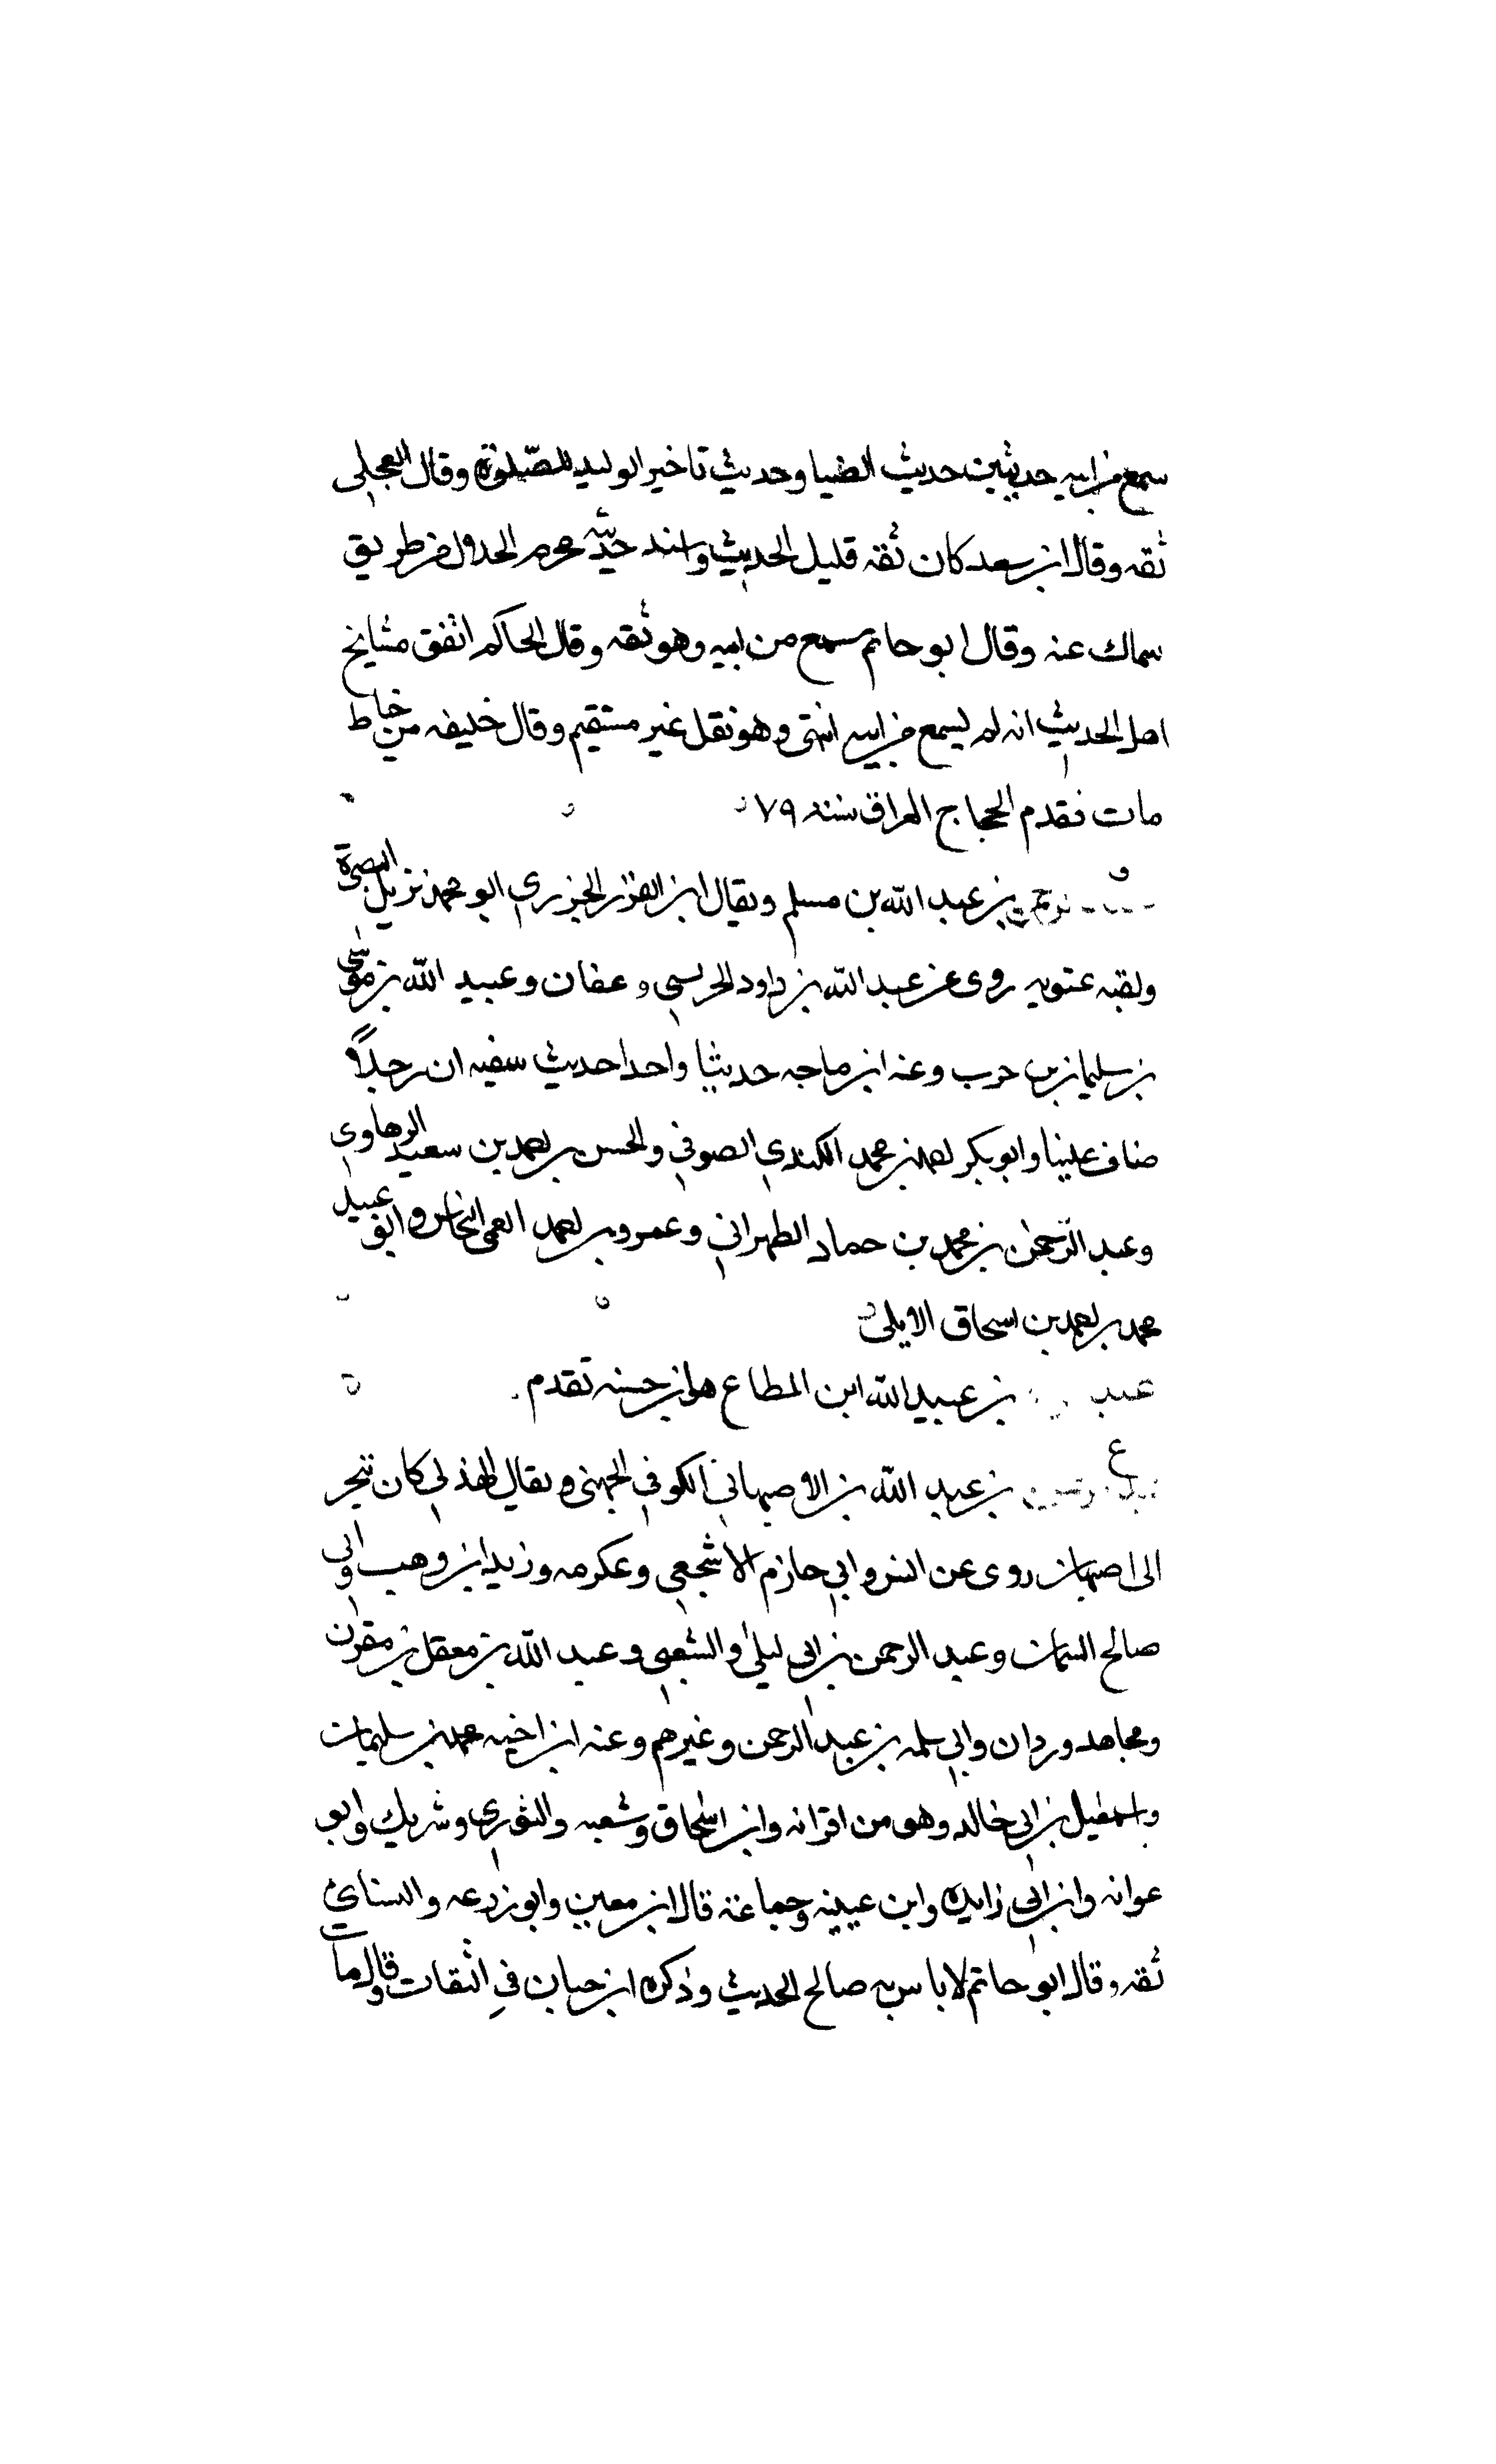 سمع من ابيه حديثين حديث الضبا وحديث تاخير الوليد للصلوة وقال العجلى
ثقه وقال ابن سعد كان ثقه قليل الحديث واسند حديثه محرم الحلال من طريق
سماك عنه وقال ابو حاتم سمع من ابيه وهو ثقه وقال الحاكم اتفق مشايخ
اهل الحديث انه لم يسمع من ابيه انتهى وهو نقل غير مستقيم وقال خليفه من خياط
مات فقدم الحجاج العراق سنه ٧٩
ق
بن عبد الله بن مسلم ويقال ابن الجزرى ابو محمد نزيل البصرة
ولقبه عبويه روى عن عبد الله بن داود الخريبى وعفان وعبيد الله بن موسى
بن سليمان بن حرب وعنه ابن ماجه حديثا واحدا حديث سفينه ان رجلاً
ضاف علينا وابو بكر احمد بن محمد الكندي الصوفي والحسن بن احمد بن سعيد الرهاوي
وعبد الرحمن بن محمد بن حماد الطهراني وعمرو بن احمد العمى النحاس وابو عبيد
محمد بن احمد بن اسحاق الايلى
عبد بن عبيد الله ابن المطاع هو ابن حسنه تقدم
ع
بن عبد الله بن الاصبهاني الكوفي الجهنى ويقال الهذلي كان تتجر
الى اصبهان روى عن انس وابي حازم الاشجعي وعكرمه وزيد ابن وهب وابى
صالح السمان وعبد الرحمن بن ابى ليلى والشعبي وعبد الله بن معقل بن مقرن
ومجاهد وردان وابي سلمه بن عبد الرحمن وغيرهم وعنه ابن اخيه محمد بن سليمان
واسمعيل بن ابي خالد وهو من اقرانه وابن اسحاق وشعبه والثوري وشريك وابو
عوانه وابن ابي زايده وابن عيينه وجماعة قال ابن معين وابو زرعه والنسائ
ثقه وقال ابو حاتم لا باس به صالح الحديث وذكره ابن حبان في الثقات وقال مات